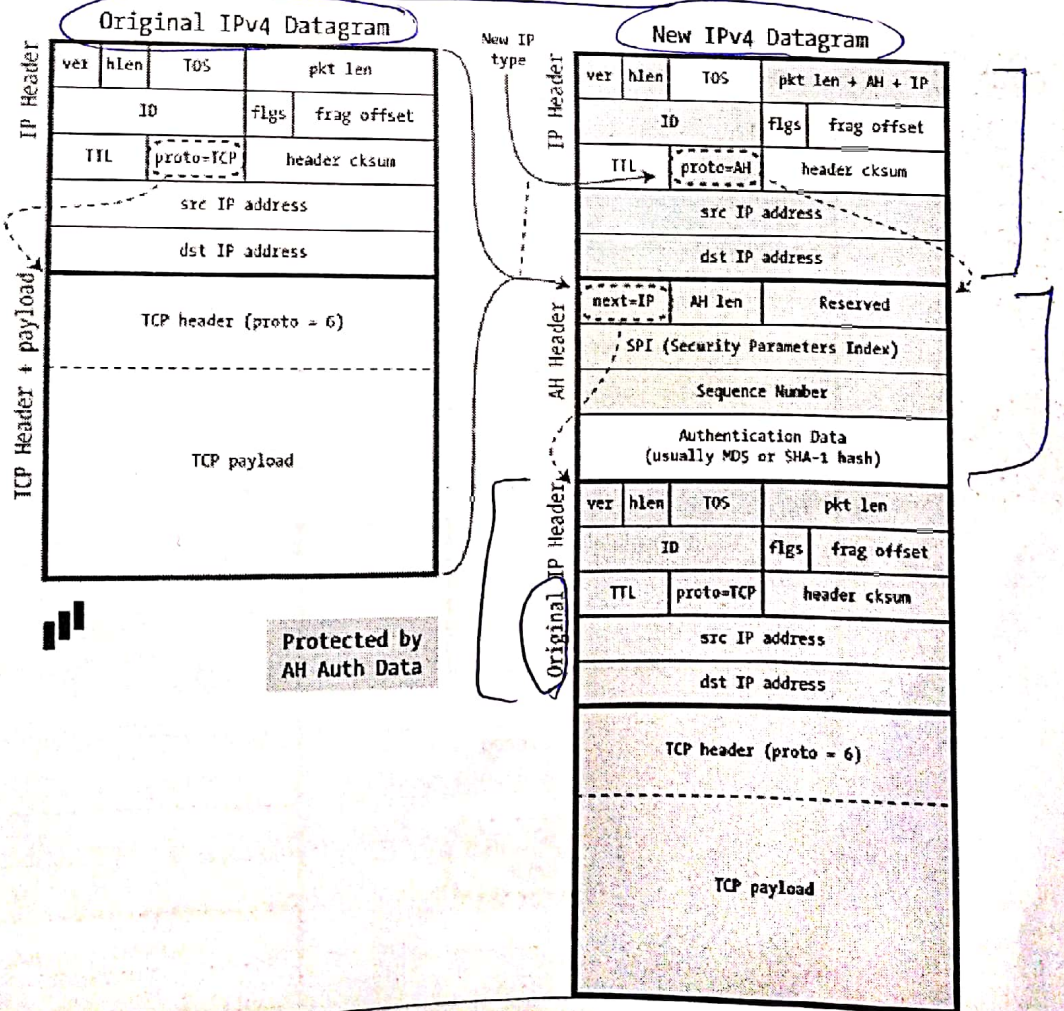 Original IPv4 Datagram
IP Header
ver hlen TOS pkt len
ID flgs frag offset
TTL proto=TCP header cksum
src IP address
dst IP address
TCP Header + payload
TCP header (proto = 6)
TCP payload
Protected by
AH Auth Data
New IP
type
New IPv4 Datagram
IP Header
ver hlen TOS pkt len + AH + IP
ID flgs frag offset
TTL proto=AH header cksum
src IP address
dst IP address
AH Header
next=IP AH len Reserved
SPI (Security Parameters Index)
Sequence Number
Authentication Data
(usually MD5 or SHA-1 hash)
Original IP Header
ver hlen TOS pkt len
ID flgs frag offset
TTL proto=TCP header cksum
src IP address
dst IP address
TCP header (proto = 6)
TCP payload